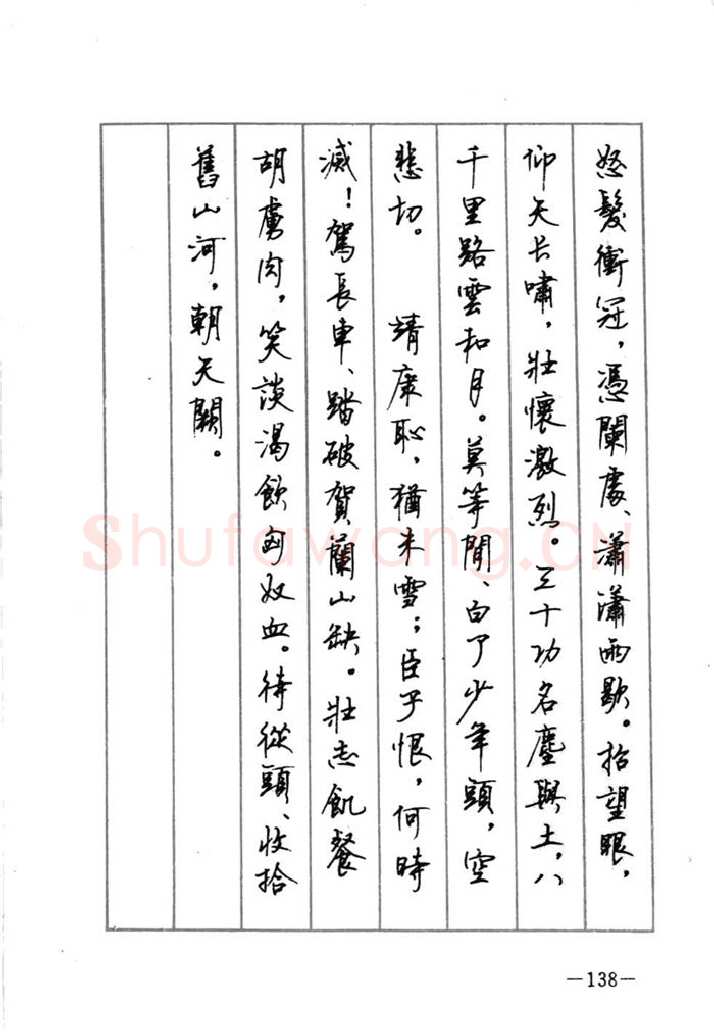 怒髮衝冠，憑闌處、瀟瀟雨歇。抬望眼，
仰天长嘯，壯懷激烈。三十功名塵與土，八
千里路雲和月。莫等閒、白了少年頭，空
悲切。　靖康恥，猶未雪；臣子恨，何時
滅！駕長車、踏破賀蘭山缺。壯志飢餐
胡虜肉，笑談渴飲匈奴血。待從頭、收拾
舊山河，朝天闕。
Shufawang.CN
—138—